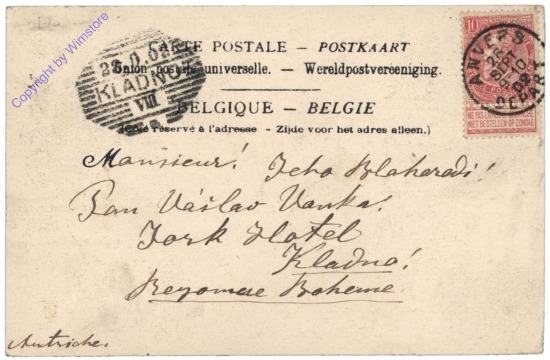 Copyright by Wimstore
CARTE POSTALE – POSTKAART
Union postale universelle. – Wereldpostvereeniging.
BELGIQUE – BELGIE
(Côté réservé à l'adresse - Zijde voor het adres alleen.)
KLADNO
VIII
10
ANVERS
DEPART
NIET BESTELLEN OP ZONDAG
Monsieur! Jeho Blahorodí!
Pan Václav Vanka.
York Hotel
Kladno!
Bohème
Autriche.